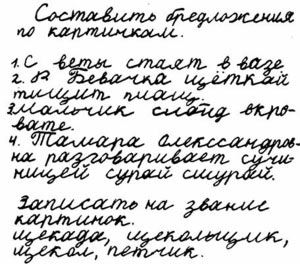 Составить бредложения
по картинкам.
1. С веты стаят в вазе
2. Я Бевачка щёткай
тищит плащ.
3. мальчик слойд окро-
вате.
4. Тамара Олекссандров-
на разговаривает сучи-
ницей сурай сшурай.
Записать на звание
картинок.
щекада, щекольщик,
щекол, петчик.